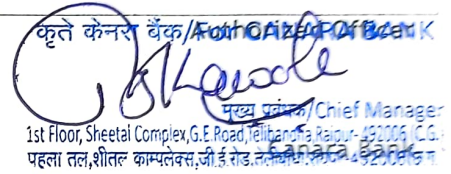 कृते केनरा बैंक/For CANARA BANK
Authorized Officer
मुख्य प्रबंधक/Chief Manager
1st Floor, Sheetal Complex, G.E. Road, Telibandha, Raipur- 492006 (C.G.
पहला तल, शीतल काम्पलेक्स, जी.ई. रोड,
Canara Bank